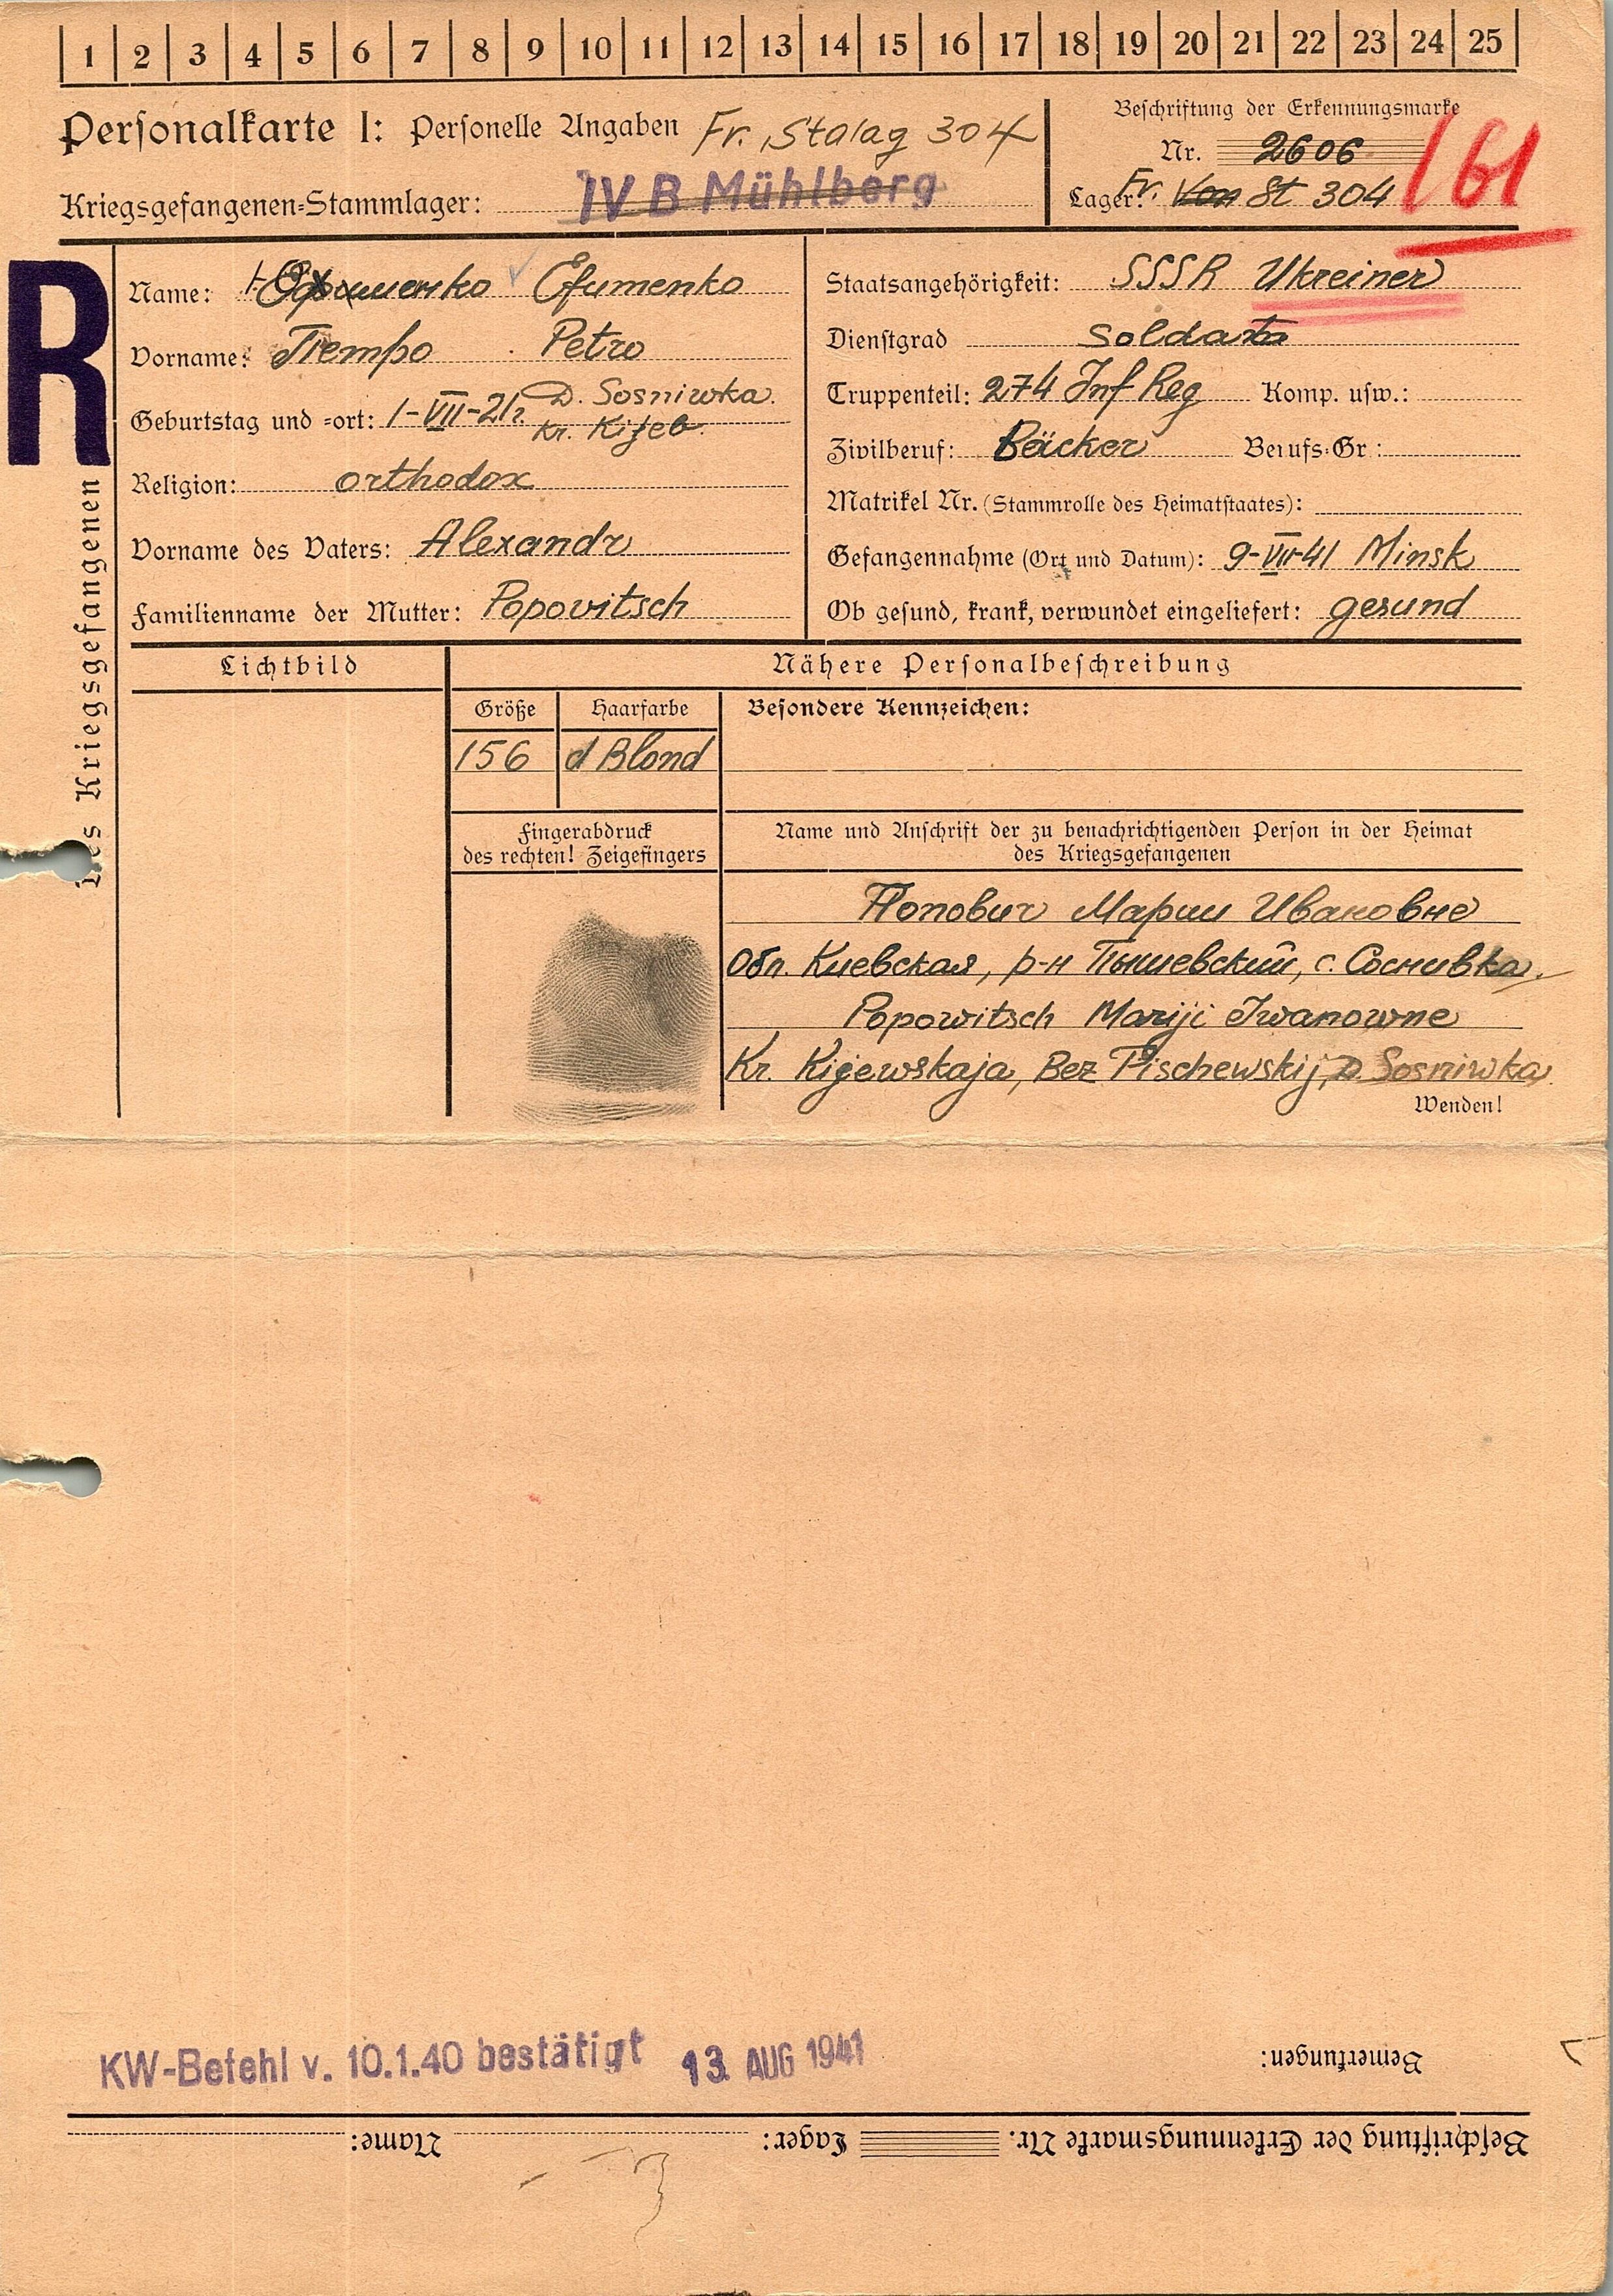 1 2 3 4 5 6 7 8 9 10 11 12 13 14 15 16 17 18 19 20 21 22 23 24 25
Personalkarte I: Personelle Angaben Fr. Stalag 304
Kriegsgefangenen-Stammlager: IV B Mühlberg
Beschriftung der Erkennungsmarke
Nr. 2606
Lager: Fr. Von St 304
161
R
des Kriegsgefangenen
Name: Efumenko
Vorname: Петро Petro
Geburtstag und -ort: 1-VII-21 D. Sosniwka
Kr. Kijeb.
Religion: orthodox
Vorname des Vaters: Alexandr
Familienname der Mutter: Popovitsch
Staatsangehörigkeit: SSSR Ukreiner
Dienstgrad Soldat
Truppenteil: 274 Inf Reg Komp. usw.:
Zivilberuf: Bäcker Berufs-Gr.:
Matrikel Nr. (Stammrolle des Heimatstaates):
Gefangennahme (Ort und Datum): 9-VII-41 Minsk
Ob gesund, krank, verwundet eingeliefert: gesund
Lichtbild
Nähere Personalbeschreibung
Größe Haarfarbe Besondere Kennzeichen:
156 d Blond
Fingerabdruck
des rechten! Zeigefingers
Name und Anschrift der zu benachrichtigenden Person in der Heimat
des Kriegsgefangenen
Попович Марии Ивановне
Обл. Киевская, р-н Пышевский, с. Соснивка.
Popowitsch Mariji Iwanowne
Kr. Kijewskaja, Bez Pischewskij, D. Sosniwka
Wenden!
KW-Befehl v. 10.1.40 bestätigt 13. AUG 1941
Bemerkungen:
Beschriftung der Erkennungsmarke Nr. Lager: Name: